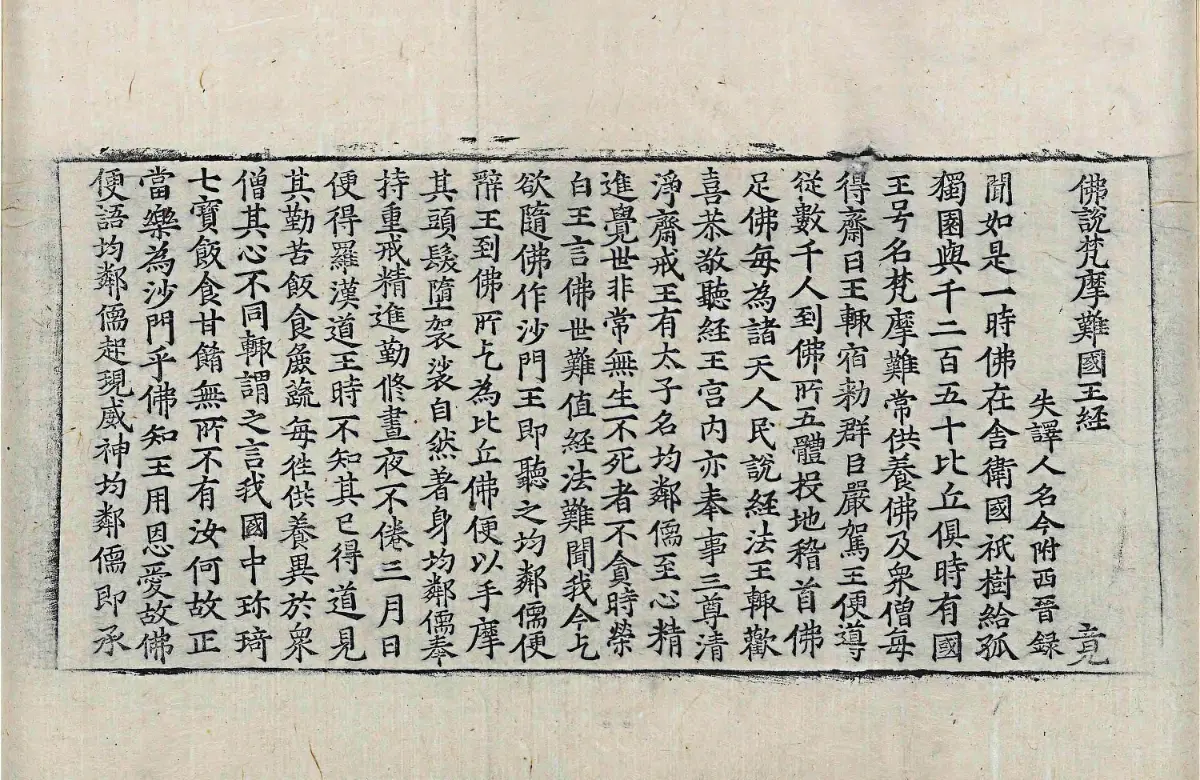 佛說梵摩難國王經　竟
失譯人名今附西晉録
聞如是一時佛在舎衛國祇樹給孤
獨園與千二百五十比丘俱時有國
王号名梵摩難常供養佛及衆僧每
得齋日王輒宿勑群臣嚴駕王便導
從數千人到佛所五體投地稽首佛
足佛每為諸天人民說經法王輒歡
喜恭敬聽經王宮内亦奉事三尊清
淨齋戒王有太子名均鄰儒至心精
進覺世非常無生不死者不貪時榮
白王言佛世難值経法難聞我今乞
欲隨佛作沙門王即聽之均鄰儒便
辭王到佛所乞為比丘佛便以手摩
其頭髮墮袈裟自然著身均鄰儒奉
持重戒精進勤修晝夜不倦三月日
便得羅漢道王時不知其已得道見
其勤苦飯食麁蔬每往供養異於衆
僧其心不同輒謂之言我國中珎琦
七寶飯食甘餚無所不有汝何故正
當樂為沙門乎佛知王用恩愛故佛
便語均鄰儒起現威神均鄰儒即承